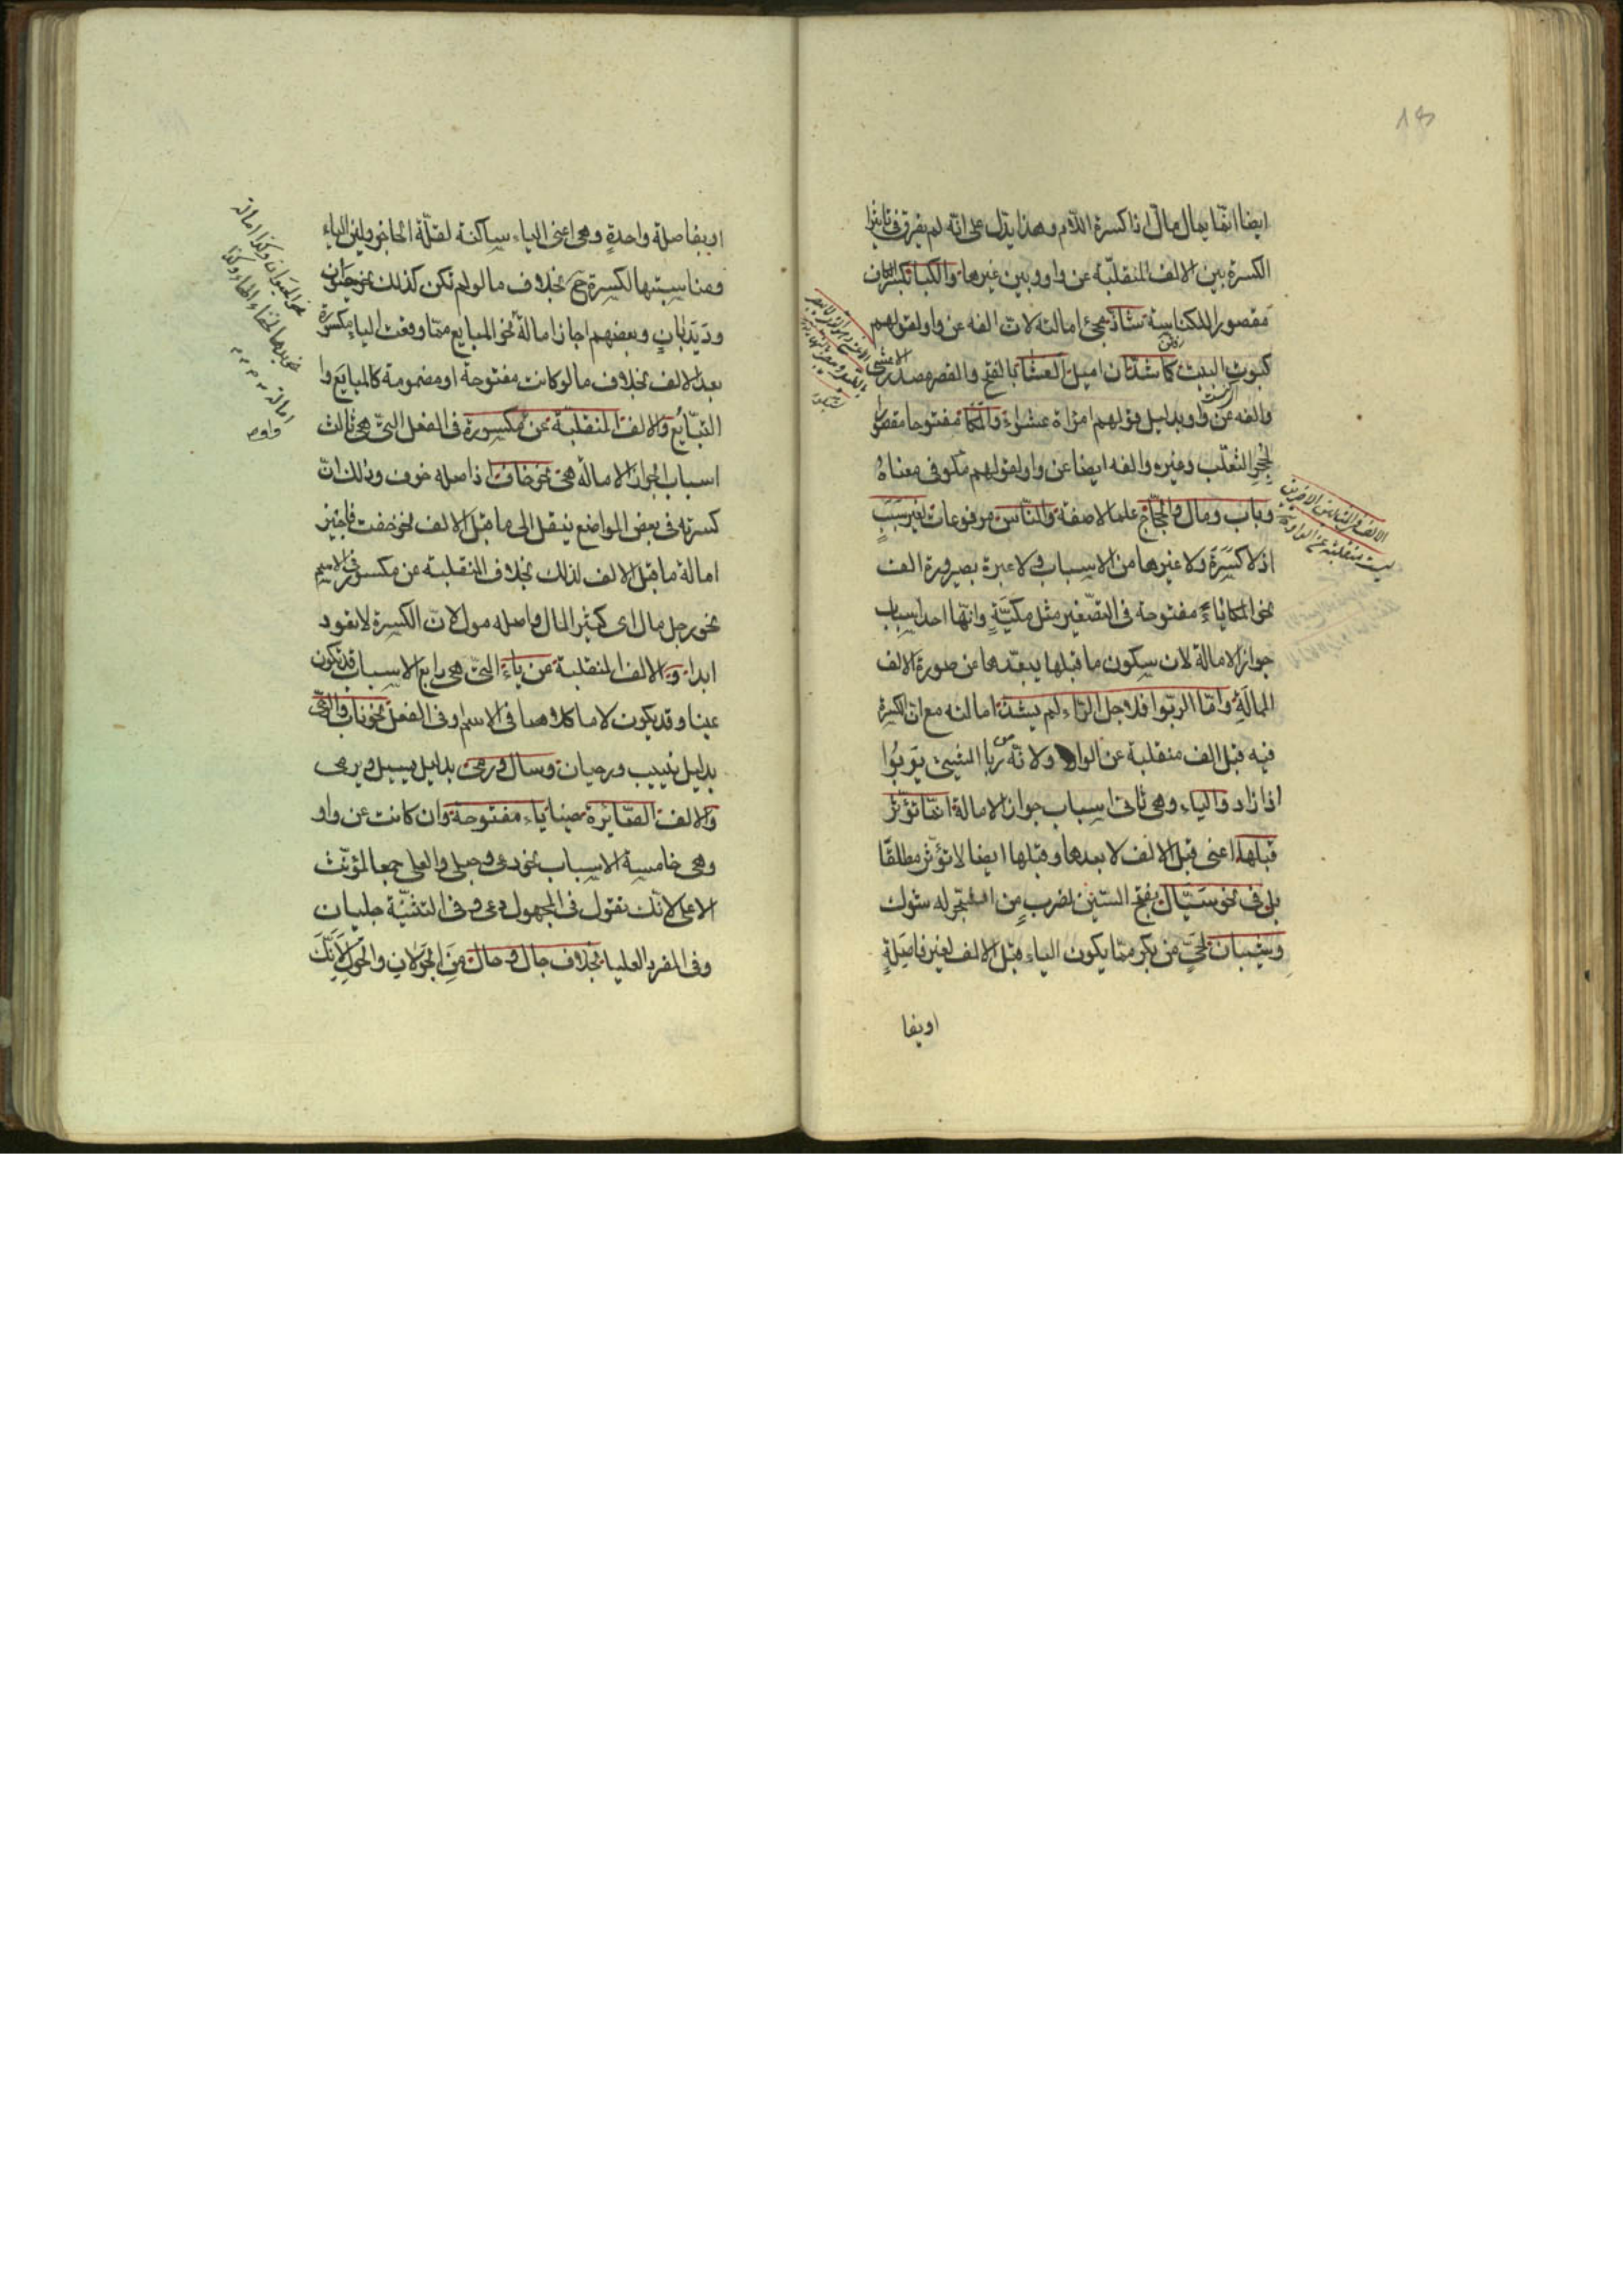 ايضا انما يمال مال اذا كسرة اللام وهذا يدل على انه لم يفرق في تاثير
الكسرة بين الالف المنقلبة عن واو وبين غيرها والكبا بكسر الكاف
مقصورا للكناسة شاذ مجئ امالته لان الفه عن واو لقولهم
كبوت البيت كما شذ ان اميل العشا بالفتح والقصر مصدر الاعشى
والفه عن واو بدليل قولهم امراة عشواء والمكا مفتوحا مقصورا
لجحر الثعلب وغيره والفه ايضا عن واو لقولهم مكو في معناه
وباب ومال والحجاج علما لا صفة والناس مرفوعات لغير سبب
اذ لا كسرة ولا غيرها من الاسباب ولا عبرة بصيرورة الف
نحو المكا ياء مفتوحة في التصغير مثل مكية وانها احد اسباب
جواز الامالة لان سكون ما قبلها يبعدها عن صورة الالف
الممالة واما الربوا فلاجل الراء لم يشذ امالته مع ان الكسرة
فيه قبل الف منقلبة عن الواو ولانه من ربا الشيئ يربوا
اذا زاد والياء وهي ثاني اسباب جواز الامالة انما تؤثر
قبلها اعني قبل الالف لا بعدها وقبلها ايضا لا تؤثر مطلقا
بل في نحو سيال بفتح السين لضرب من الشجر له شوك
وشيبان لحي من بكر مما يكون الياء قبل الالف لغير فاصلة
اوبفا
او بفاصلة واحدة وهي اعني الياء ساكنة لقلة الحاجز ولين الياء
ومناسبتها لكسرة ح بخلاف ما لو لم تكن كذلك نحو حيوان
وديدبان وبعضهم اجاز امالة نحو المبايع مما وقعت الياء مكسورة
بعد الالف بخلاف ما لو كانت مفتوحة او مضمومة كالمبايع وا
التبايع والالف المنقلبة عن مكسورة في الفعل التي هي ثالث
اسباب الجواز الامالة هي نحو خاف اذ اصله خوف وذلك ان
كسرته في بعض المواضع ينقل الى ما قبل الالف نحو خفت فاجيز
امالة ما قبل الالف لذلك بخلاف المنقلبة عن مكسور في الاسم
نحو رجل مال اى كثير المال واصله مول لان الكسرة لا تعود
ابدا والالف المنقلبة عن ياء التي هي رابع الاسباب قد تكون
عينا وقد يكون لاما كلاهما في الاسم وفي الفعل نحو ناب والرحى
بدليل نييب ورحيان وسال ورمى بدليل يسيل ويرمى
والالف الصائرة ياء مفتوحة وان كانت عن واو
وهي خامسة الاسباب نحو دعى وحبلى والعلى جمعا لمؤنث
الاعلى لانك تقول في المجهول دعى وفي التثنية حبليان
وفي المفرد العليا بخلاف جال وحال من الجولان والحول لانك